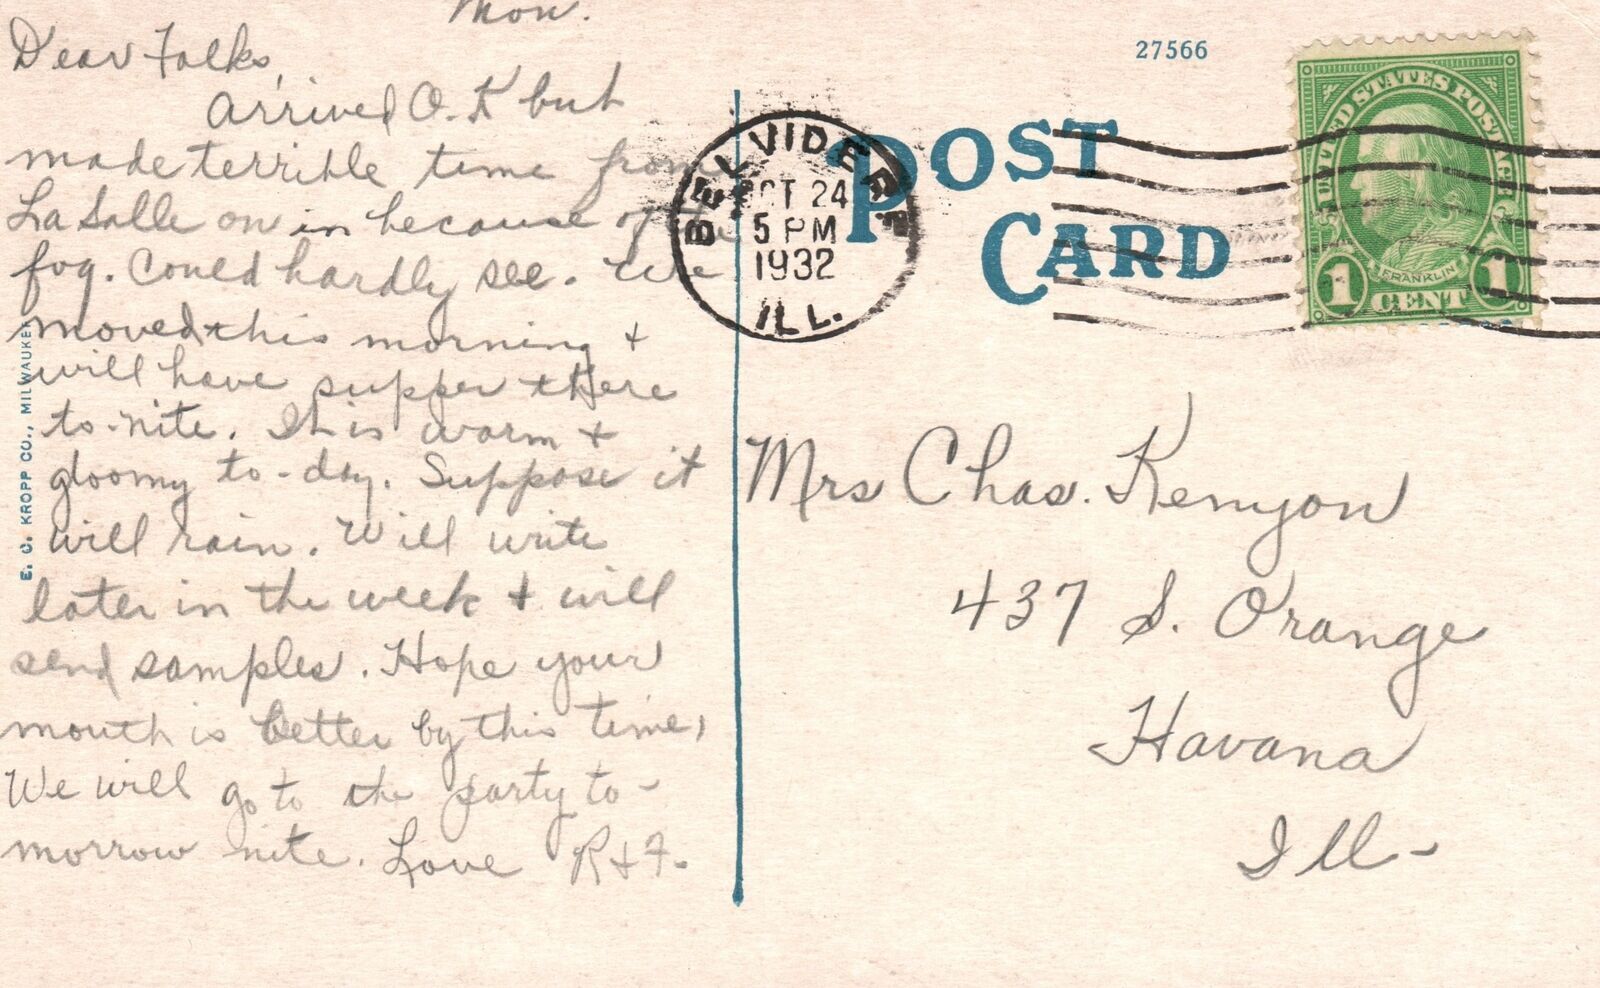 Mon.
Dear Folks,
Arrived O.K but
made terrible time from
La Salle on in because of the
fog. Could hardly see. We
moved this morning +
will have supper there
to-nite. It is warm +
gloomy to-day. Suppose it
will rain. Will write
later in the week + will
send samples. Hope your
mouth is better by this time,
We will go to the party to-
morrow nite. Love R + F.
E. C. KROPP CO., MILWAUKEE
27566
POST
CARD
BELVIDERE
OCT 24
5 PM
1932
ILL.
UNITED STATES POSTAGE
FRANKLIN
1 CENT 1
Mrs Chas. Kenyon
437 S. Orange
Havana
Ill-